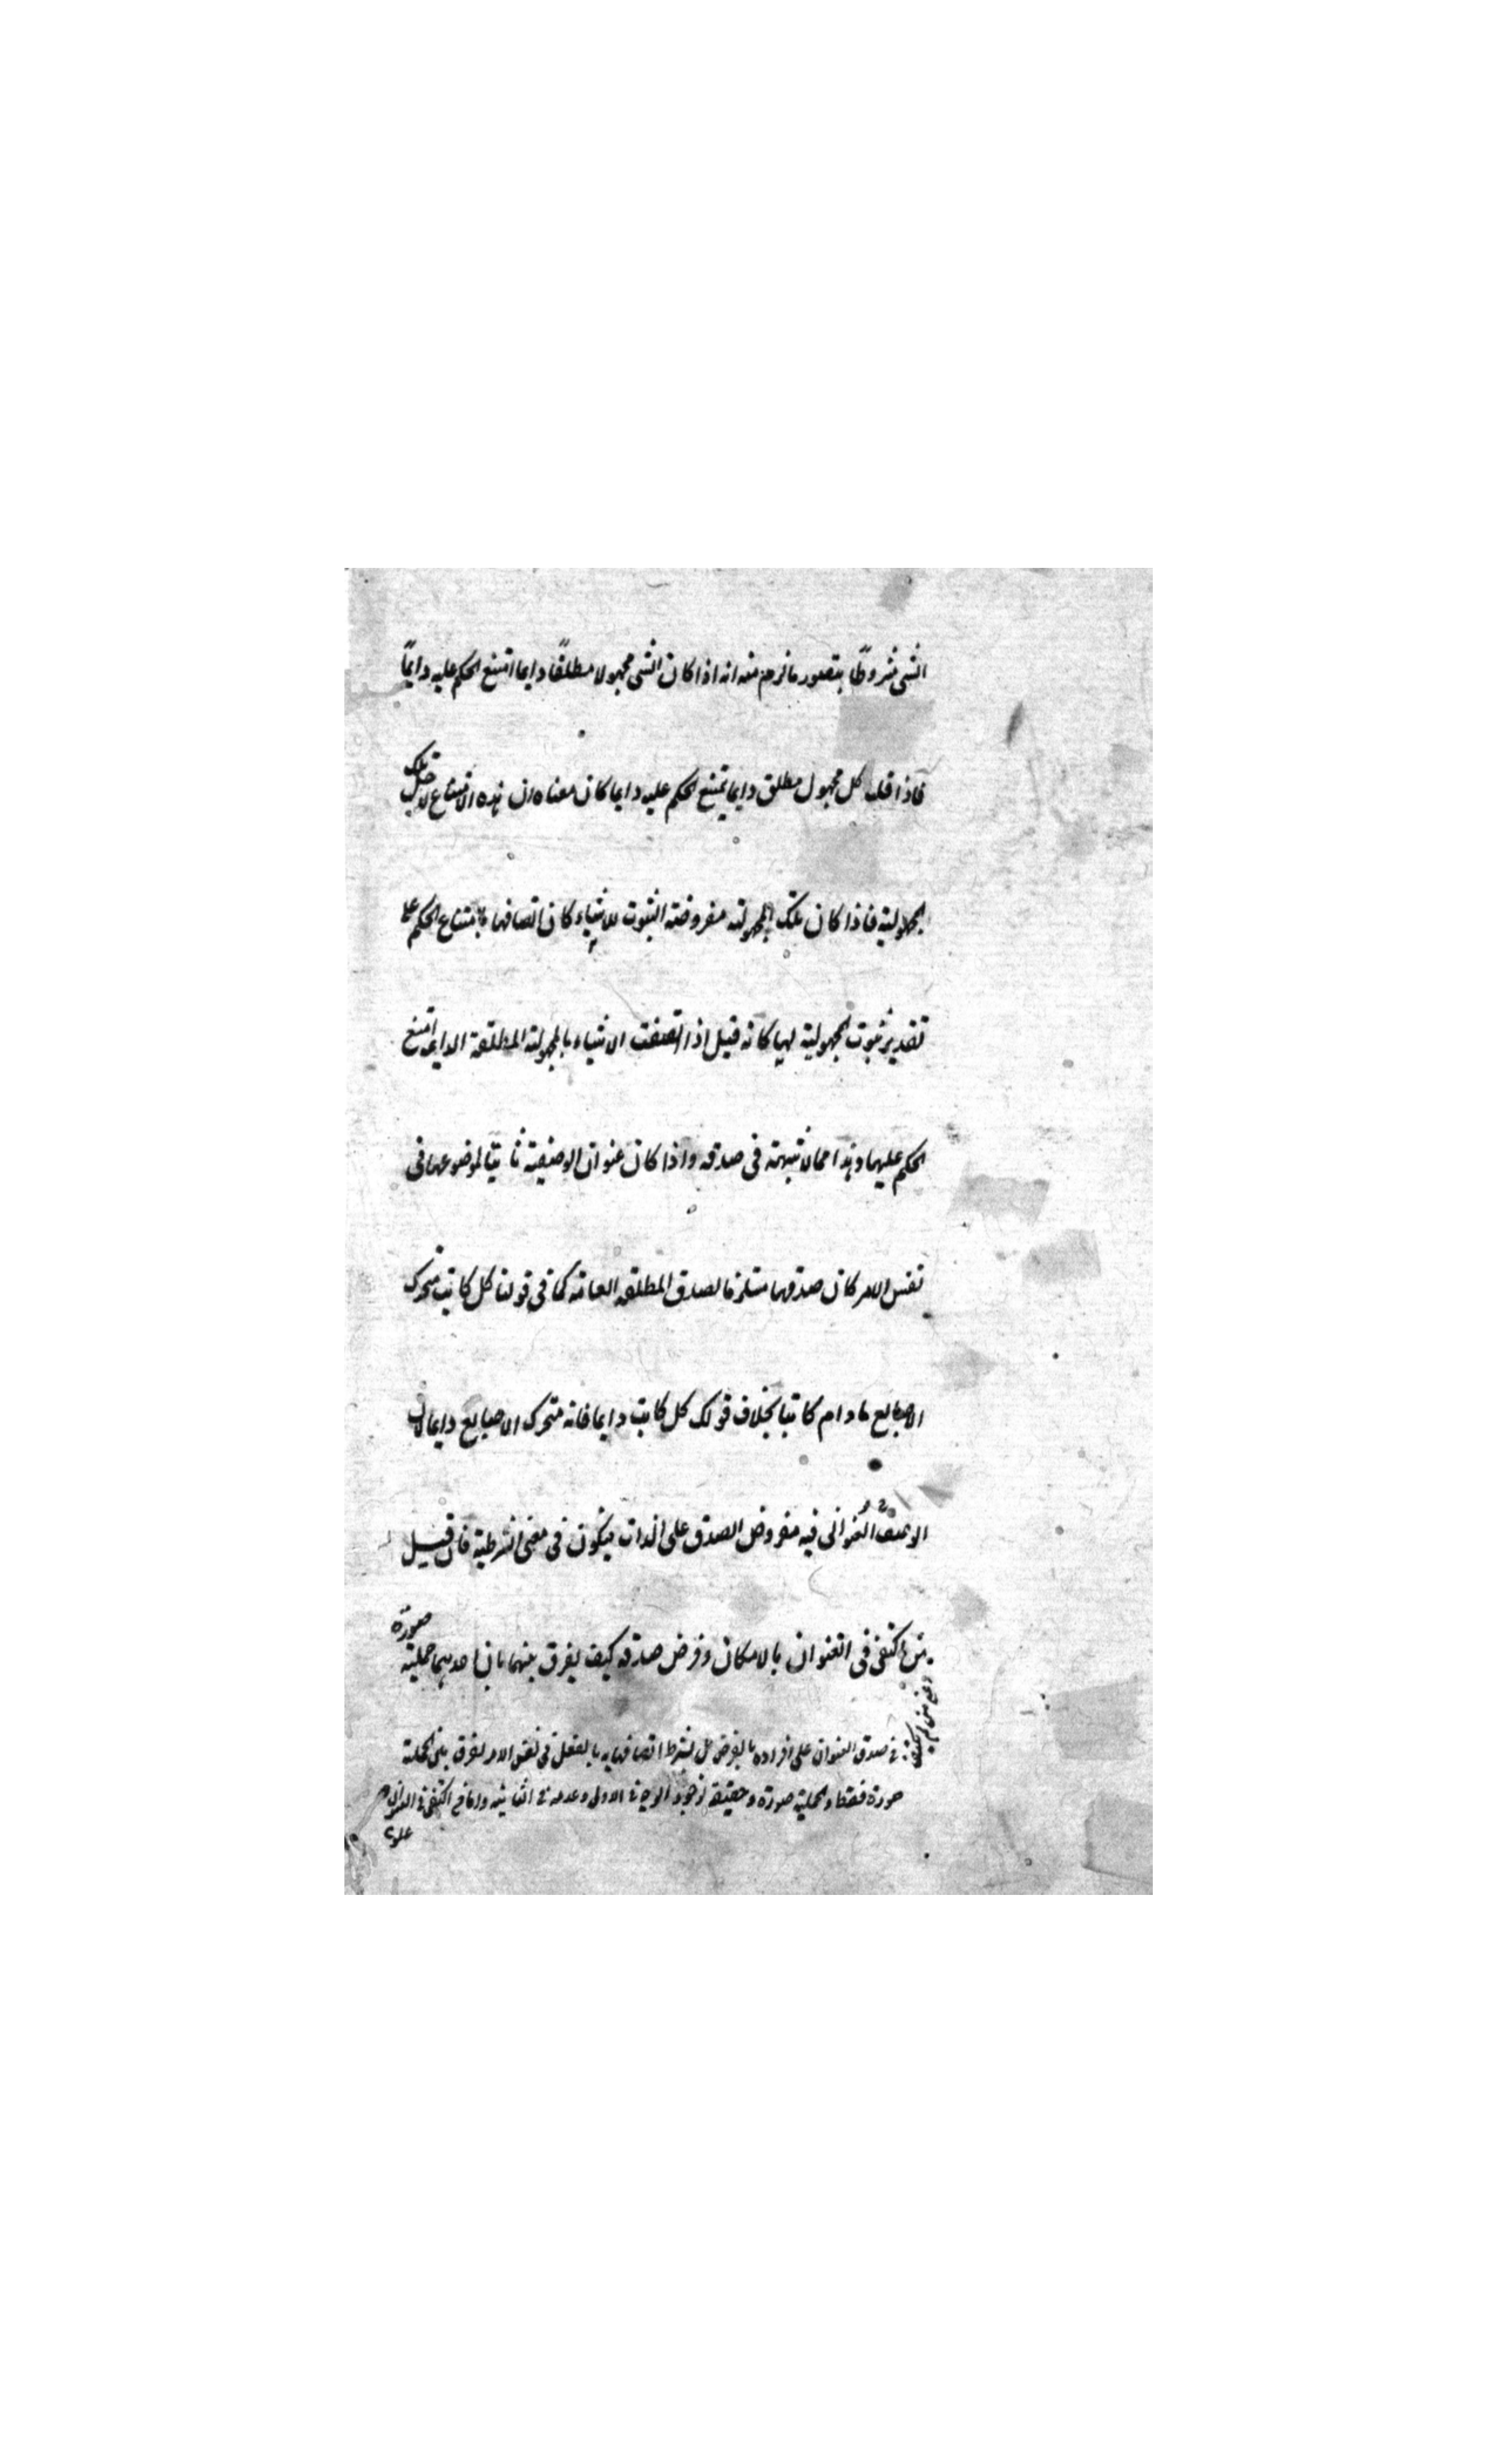 الشى مشروطًا بتصور ما لزم منه انه اذا كان الشى مجهولا مطلقًا دايما امتنع الحكم عليه دايمًا
فاذا قلت كل مجهول مطلق دايما يمتنع الحكم عليه دايما كان معناه ان هذه الامتناع لاجل تلك
المجهولية فاذا كان تلك المجهولية مفروضة الثبوت للاشياء كان اتصافها بامتناع الحكم على
تقدير ثبوت المجهولية لها كانه قيل اذا اتصفت الاشياء بالمجهولية المطلقة الدايمى امتنع
الحكم عليها وهذا مما لا شبهة فى صدقه واذا كان عنوان الوصفية ثابتا لموضوعها فى
نفس الامر كان صدقها مستلزما لصدق المطلقة العامة كما فى قولنا كل كاتب متحرك
الاصابع ما دام كاتبا بخلاف قولك كل كاتب دايما فانه متحرك الاصابع دايما لان
الوصف العنوانى فيه مفروض الصدق على الذات فيكون فى معنى الشرطية فان قيل
من اكتفى فى العنوان بالامكان وفرض صدقه كيف يفرق بينهما بان احديهما حملية صورة
فى صدق العنوان على افراده بالفرض بل بشرط اتصافها به بالفعل فى نفس الامر يفرق بين الحملية
صورة فقط والحملية صورة وحقيقة بوجود فى الاول وعدمه فى الثانية واما من اكتفى فى العنوان